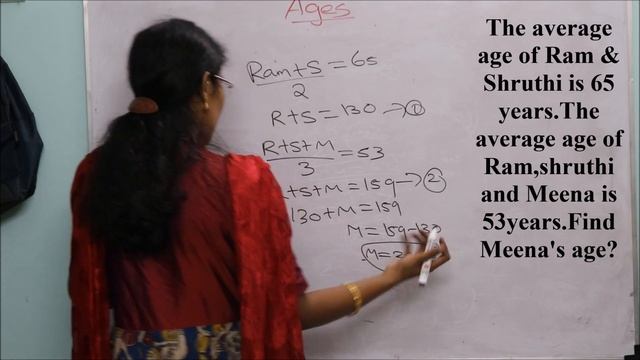 Ages
Ram+S/2 = 65
R+S = 130 → ①
R+S+M/3 = 53
+S+M = 159 → ②
130+M = 159
M = 159-130
M = 2
The average
age of Ram &
Shruthi is 65
years.The
average age of
Ram,shruthi
and Meena is
53years.Find
Meena's age?